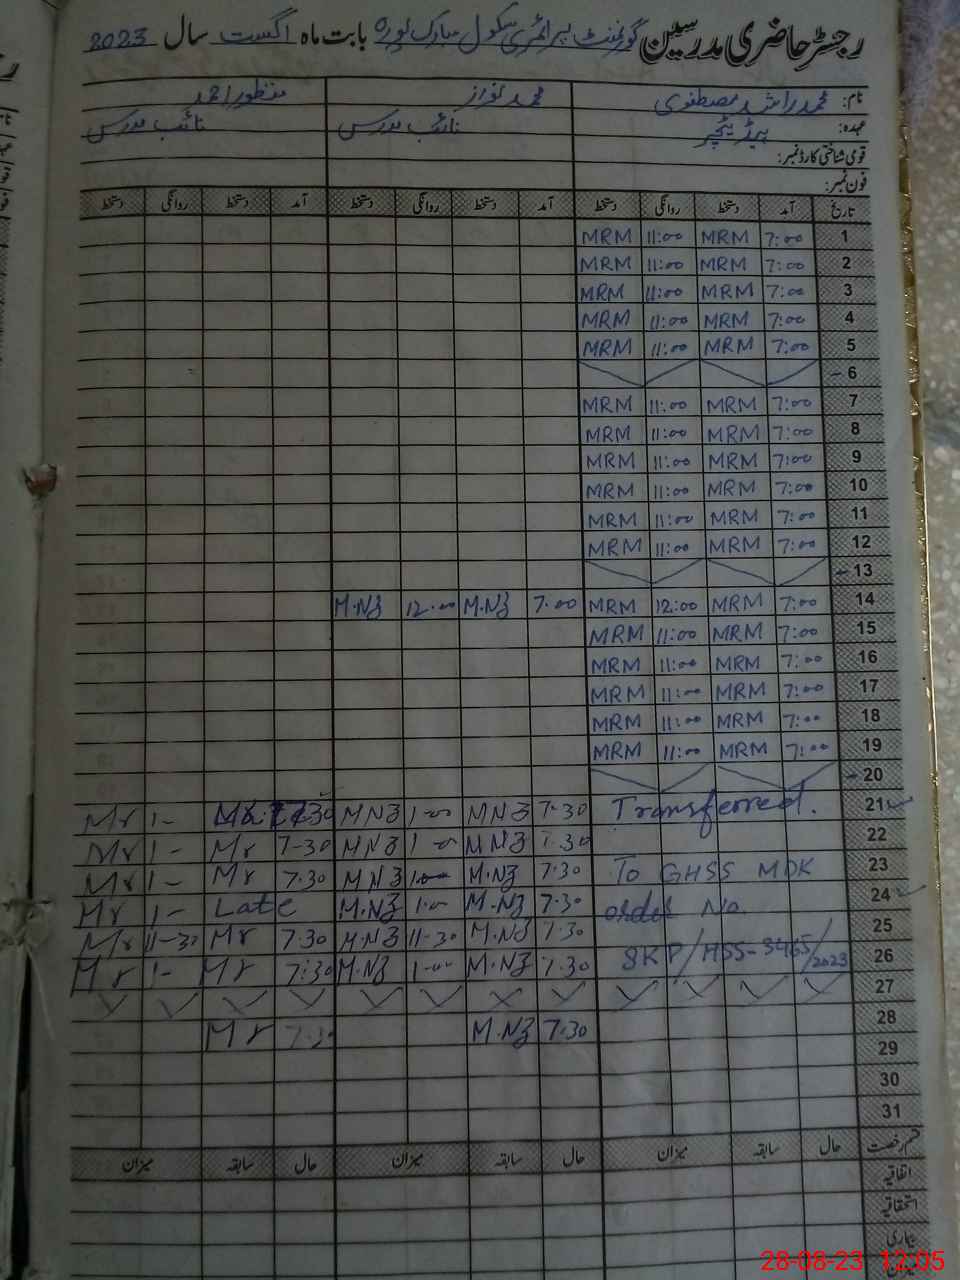 رجسٹر حاضری مدرسین گورنمنٹ پرائمری سکول مبارک پورہ بابت ماہ اگست سال 2023
نام: محمد راشد مصطفوی محمد نواز منظور احمد
عہدہ: ہیڈ ٹیچر نائب مدرس نائب مدرس
قومی شناختی کارڈ نمبر:
فون نمبر:
تاریخ آمد دستخط روانگی دستخط آمد دستخط روانگی دستخط آمد دستخط روانگی دستخط
1 7:00 MRM 11:00 MRM
2 7:00 MRM 11:00 MRM
3 7:00 MRM 11:00 MRM
4 7:00 MRM 11:00 MRM
5 7:00 MRM 11:00 MRM
6
7 7:00 MRM 11:00 MRM
8 7:00 MRM 11:00 MRM
9 7:00 MRM 11:00 MRM
10 7:00 MRM 11:00 MRM
11 7:00 MRM 11:00 MRM
12 7:00 MRM 11:00 MRM
13
14 7:00 MRM 12:00 MRM 7.00 M.NZ 12.00 M.NZ
15 7:00 MRM 11:00 MRM
16 7:00 MRM 11:00 MRM
17 7:00 MRM 11:00 MRM
18 7:00 MRM 11:00 MRM
19 7:00 MRM 11:00 MRM
20
21 Transferred. 7.30 MNZ 1-00 MNZ 7.30 1- Mr
22 7.30 MNZ 1-00 MNZ 7-30 Mr 1- Mr
23 To GHSS MDK 7.30 M.NZ MNZ 7.30 Mr 1- Mr
24 order No. 7.30 M.NZ 1.00 M.NZ Late 1- Mr
25 7.30 M.NZ 11-30 M.NZ 7.30 Mr 11-30 Mr
26 SKP/HSS-3465/2023 7.30 M.NZ 1-00 M.NZ 7:30 Mr 1- Mr
27
28 7.30 M.NZ 7.30 Mr
29
30
31
قسم رخصت حال سابقہ میزان حال سابقہ میزان حال سابقہ میزان
اتفاقیہ
استحقاقیہ
بیماری
28-08-23 12:05